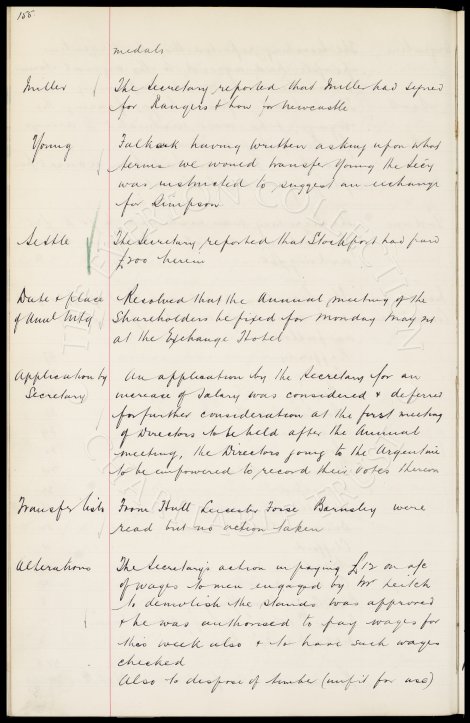 155.
medals
Miller The Secretary reported that Miller had signed
for Rangers & Low for Newcastle
Young Falkirk having written asking upon what
terms we would transfer Young the Secy
was instructed to suggest an exchange
for Simpson
Settle The Secretary reported that Stockport had paid
£200 herein
Date & place Resolved that the Annual meeting of the
of Anul Mtg Shareholders be fixed for Monday May
at the Exchange Hotel
Application by An application by the Secretary for an
Secretary increase of salary was considered & deferred
for further consideration at the first meeting
of Directors to be held after the Annual
meeting, the Directors going to the Argentine
to be empowered to record their votes thereon
Transfer lists From Hull Leicester Fosse Barnsley were
read but no action taken
Alterations The Secretary's action in paying £12 on a/c
of wages to men engaged by Mr Leitch
to demolish the stands was approved
& he was authorised to pay wages for
this week also & to have such wages
checked
Also to dispose of timber (unfit for use)